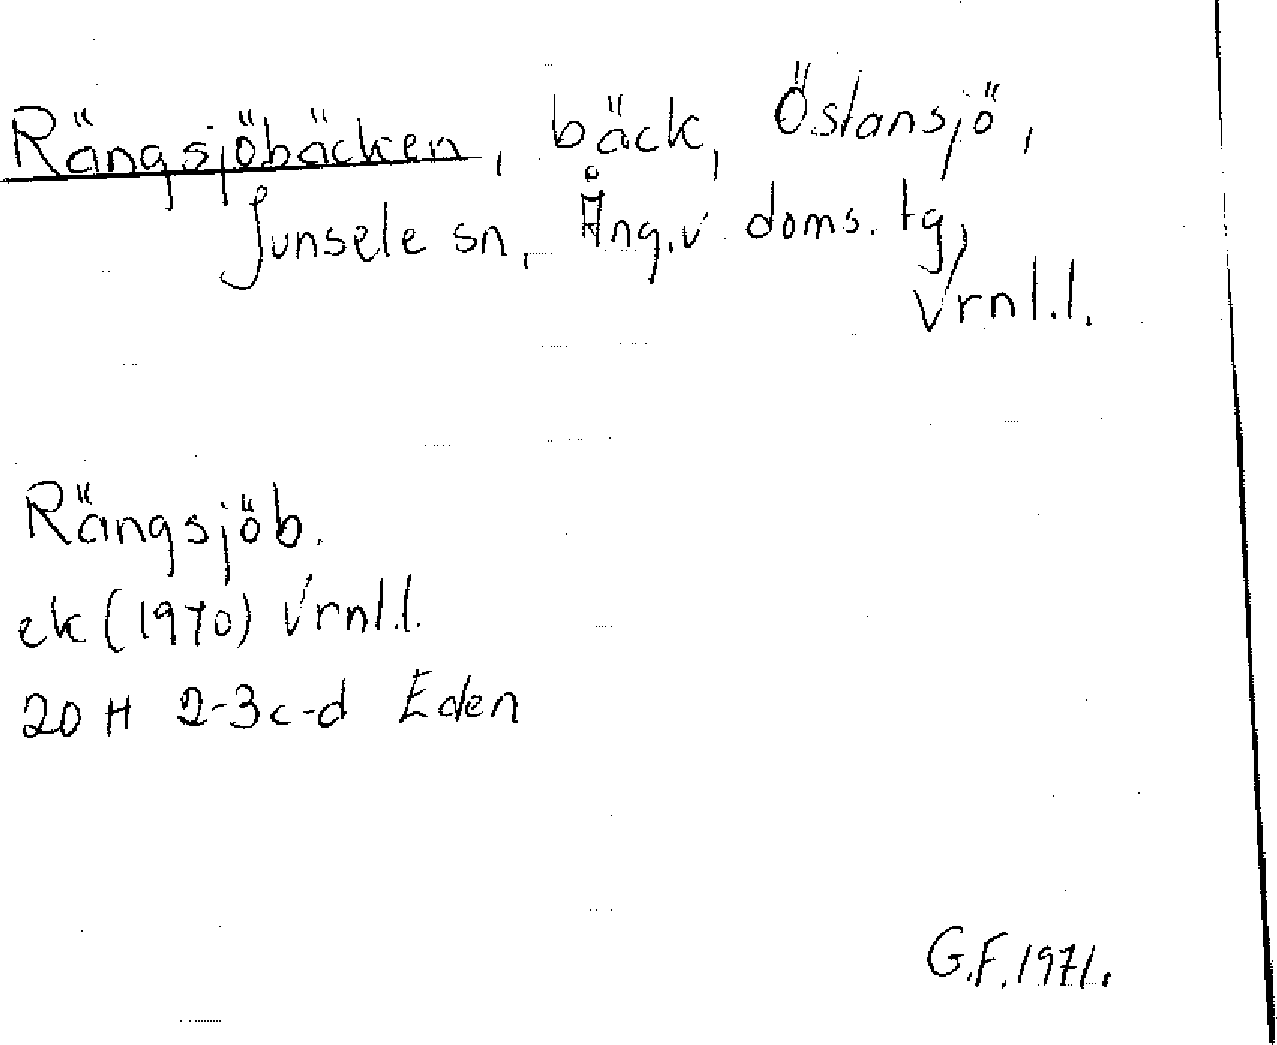 Rängsjöbäcken, bäck, Östansjö,
Junsele sn, Ång.v doms. tg,
Vrnl.l.
Rängsjöb.
ek (1970) Vrnl.l.
20 H 2-3c-d Eden
G.F. 1971.